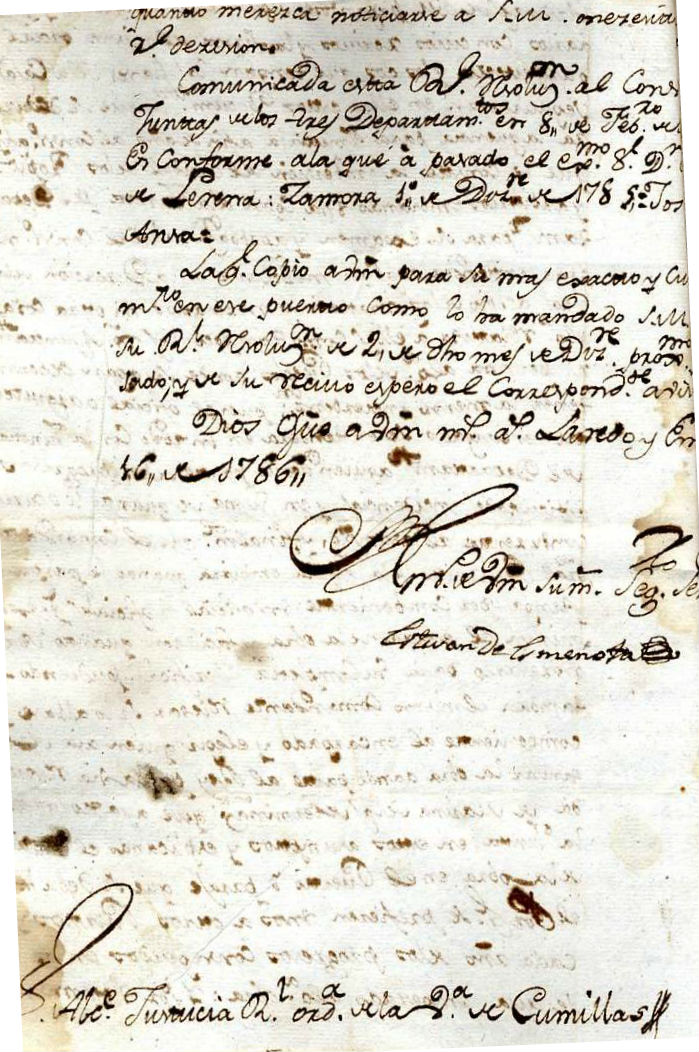 quando merezca noticiarse a S.M. o merezca
Rl. decision.
Comunicada esta Rl. Resoluzn. al Cons
Juntas de los tres Departamtos. en 8,, de Febro. de
Es Conforme a la qué à pasado el exmo. Sr. Dn.
de Lerena: Zamora 1º,, de Dizre. de 1785,,= Jos
Ansa=
La q.l Copio a Vm para su mas exacto y Cu
mto. en ese puerto como lo ha mandado S.M.
su Rl. Resoluzn. de 2,, de dho mes de Dizre. proxmo.
sado; y de su recivo espero el Correspondte. avis
Dios Gue a Vm ms. as. Laredo y En
16,, de 1786,,
Blm. de Vm su m. Seg. Se
Estevan de Esmenota
S. Alce. Justicia Rl. ordª. de la Vª. de Cumillas